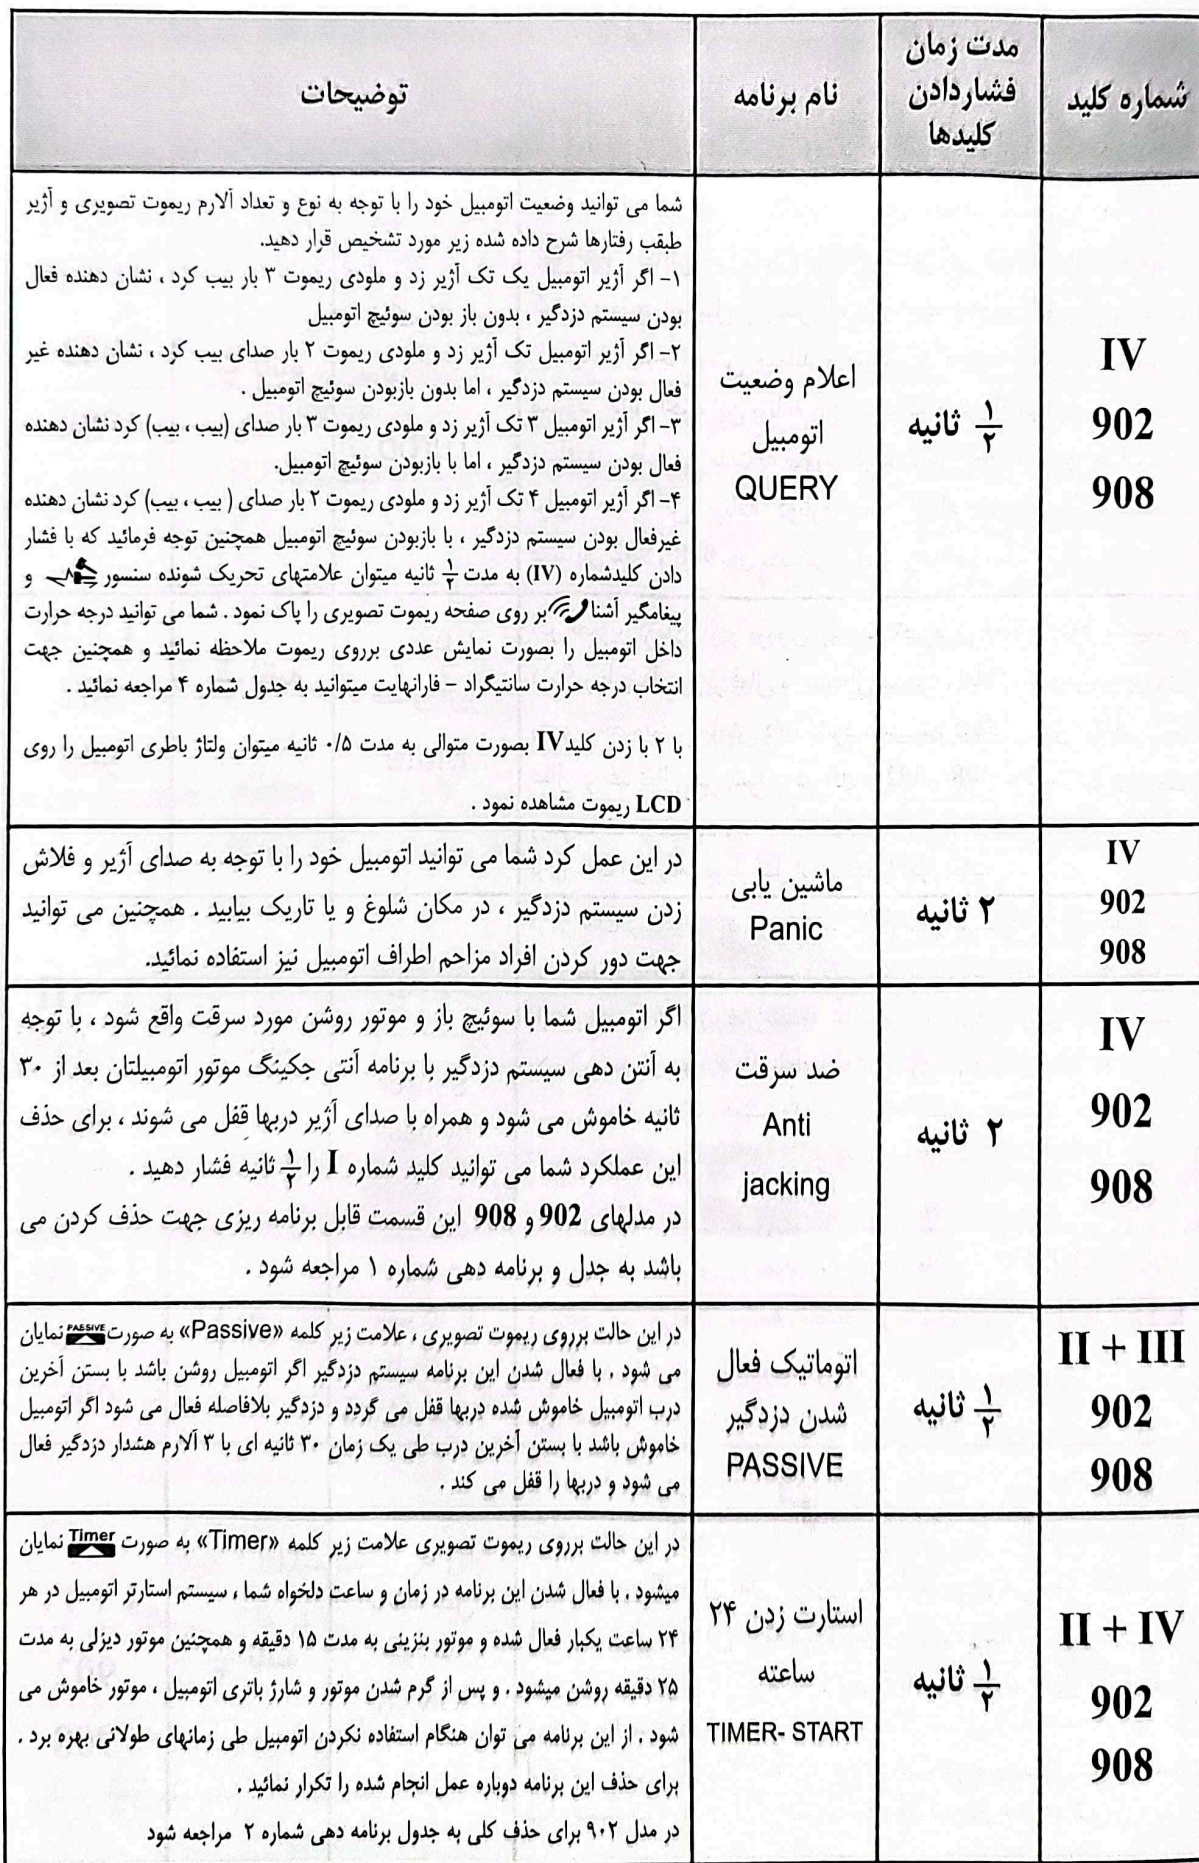 شماره کلید
مدت زمان
فشاردادن
کلیدها
نام برنامه
توضیحات
IV
902
908
۱/۲ ثانیه
اعلام وضعیت
اتومبیل
QUERY
شما می توانید وضعیت اتومبیل خود را با توجه به نوع و تعداد آلارم ریموت تصویری و آژیر
طبقب رفتارها شرح داده شده زیر مورد تشخیص قرار دهید.
۱- اگر آژیر اتومبیل یک تک آژیر زد و ملودی ریموت ۳ بار بیب کرد ، نشان دهنده فعال
بودن سیستم دزدگیر ، بدون باز بودن سوئیچ اتومبیل
۲- اگر آژیر اتومبیل تک آژیر زد و ملودی ریموت ۲ بار صدای بیب کرد ، نشان دهنده غیر
فعال بودن سیستم دزدگیر ، اما بدون بازبودن سوئیچ اتومبیل .
۳- اگر آژیر اتومبیل ۳ تک آژیر زد و ملودی ریموت ۳ بار صدای (بیب ، بیب) کرد نشان دهنده
فعال بودن سیستم دزدگیر ، اما با بازبودن سوئیچ اتومبیل.
۴- اگر آژیر اتومبیل ۴ تک آژیر زد و ملودی ریموت ۲ بار صدای ( بیب ، بیب) کرد نشان دهنده
غیرفعال بودن سیستم دزدگیر ، با بازبودن سوئیچ اتومبیل همچنین توجه فرمائید که با فشار
دادن کلیدشماره (IV) به مدت ۱/۲ ثانیه میتوان علامتهای تحریک شونده سنسور و
پیغامگیر آشنا بر روی صفحه ریموت تصویری را پاک نمود . شما می توانید درجه حرارت
داخل اتومبیل را بصورت نمایش عددی برروی ریموت ملاحظه نمائید و همچنین جهت
انتخاب درجه حرارت سانتیگراد - فارانهایت میتوانید به جدول شماره ۴ مراجعه نمائید .
با ۲ با زدن کلیدIV بصورت متوالی به مدت ۰/۵ ثانیه میتوان ولتاژ باطری اتومبیل را روی
LCD ریموت مشاهده نمود .
IV
902
908
۲ ثانیه
ماشین یابی
Panic
در این عمل کرد شما می توانید اتومبیل خود را با توجه به صدای آژیر و فلاش
زدن سیستم دزدگیر ، در مکان شلوغ و یا تاریک بیابید . همچنین می توانید
جهت دور کردن افراد مزاحم اطراف اتومبیل نیز استفاده نمائید.
IV
902
908
۲ ثانیه
ضد سرقت
Anti
jacking
اگر اتومبیل شما با سوئیچ باز و موتور روشن مورد سرقت واقع شود ، با توجه
به آنتن دهی سیستم دزدگیر با برنامه آنتی جکینگ موتور اتومبیلتان بعد از ۳۰
ثانیه خاموش می شود و همراه با صدای آژیر دربها قفل می شوند ، برای حذف
این عملکرد شما می توانید کلید شماره I را ۱/۲ ثانیه فشار دهید .
در مدلهای 902 و 908 این قسمت قابل برنامه ریزی جهت حذف کردن می
باشد به جدل و برنامه دهی شماره ۱ مراجعه شود .
II + III
902
908
۱/۲ ثانیه
اتوماتیک فعال
شدن دزدگیر
PASSIVE
در این حالت برروی ریموت تصویری ، علامت زیر کلمه «Passive» به صورت PASSIVE نمایان
می شود . با فعال شدن این برنامه سیستم دزدگیر اگر اتومبیل روشن باشد با بستن آخرین
درب اتومبیل خاموش شده دربها قفل می گردد و دزدگیر بلافاصله فعال می شود اگر اتومبیل
خاموش باشد با بستن آخرین درب طی یک زمان ۳۰ ثانیه ای با ۳ آلارم هشدار دزدگیر فعال
می شود و دربها را قفل می کند .
II + IV
902
908
۱/۲ ثانیه
استارت زدن ۲۴
ساعته
TIMER- START
در این حالت برروی ریموت تصویری علامت زیر کلمه «Timer» به صورت Timer نمایان
میشود . با فعال شدن این برنامه در زمان و ساعت دلخواه شما ، سیستم استارتر اتومبیل در هر
۲۴ ساعت یکبار فعال شده و موتور بنزینی به مدت ۱۵ دقیقه و همچنین موتور دیزلی به مدت
۲۵ دقیقه روشن میشود . و پس از گرم شدن موتور و شارژ باتری اتومبیل ، موتور خاموش می
شود . از این برنامه می توان هنگام استفاده نکردن اتومبیل طی زمانهای طولانی بهره برد .
برای حذف این برنامه دوباره عمل انجام شده را تکرار نمائید .
در مدل ۹۰۲ برای حذف کلی به جدول برنامه دهی شماره ۲ مراجعه شود